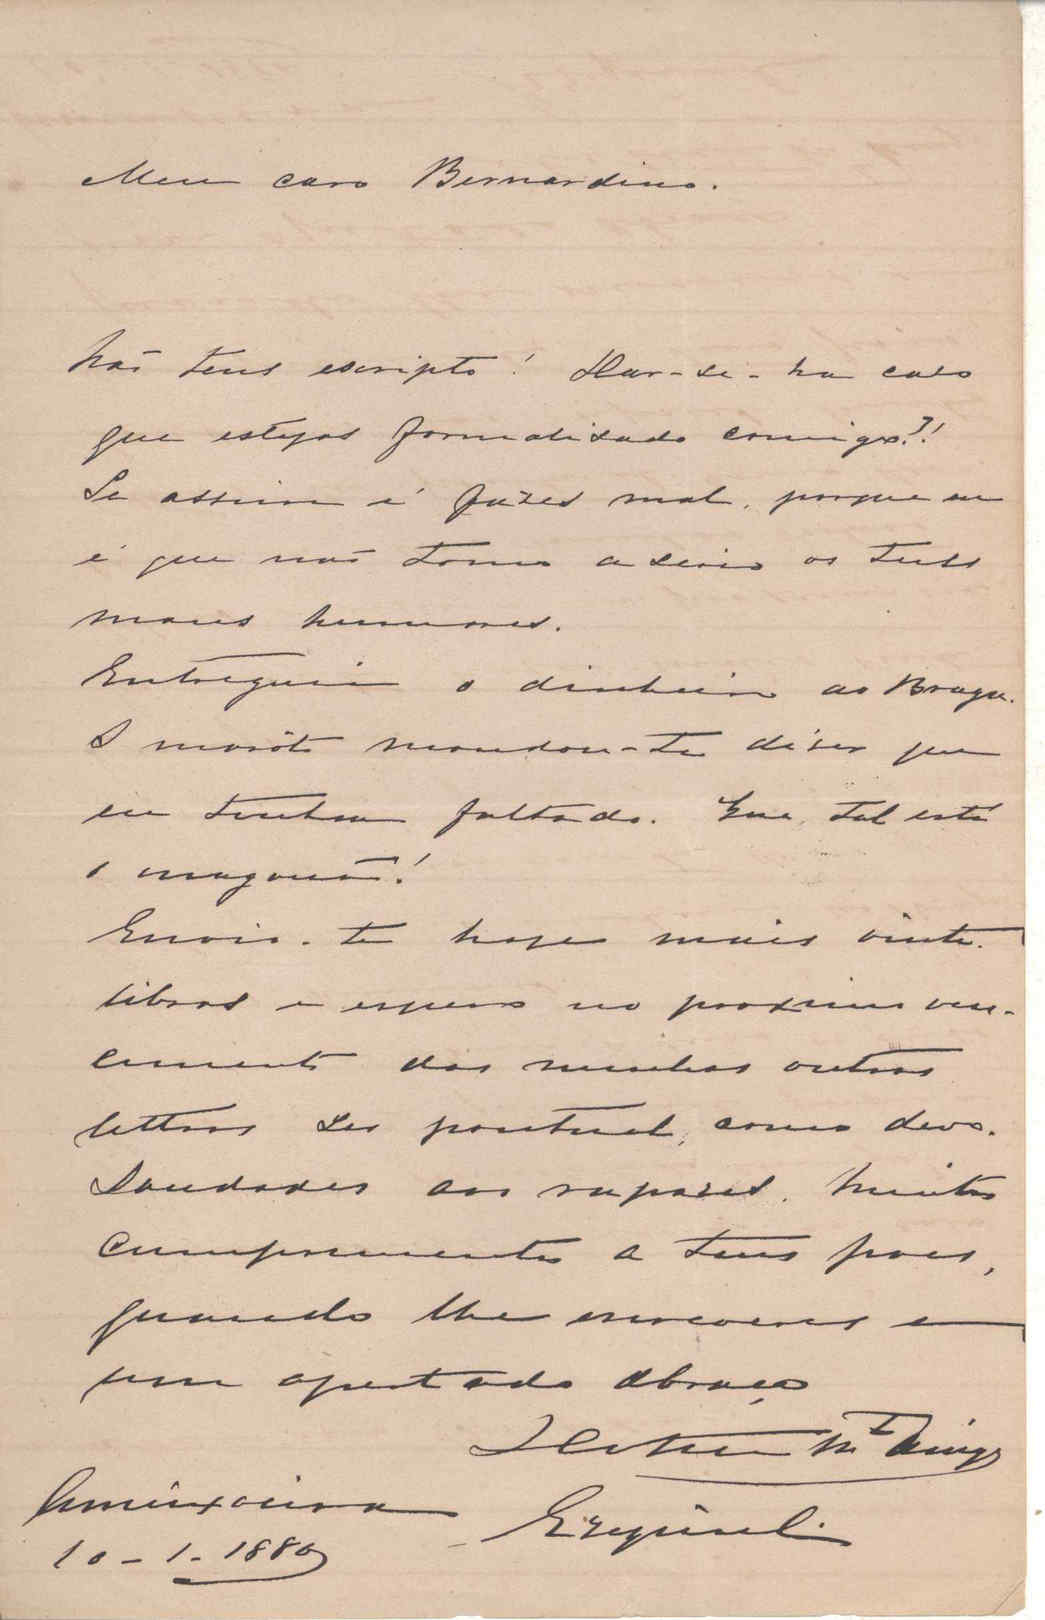 Meu caro Bernardino.
Não tens escripto! Dar-se-ha caso
que estejas formalisado comigo?!
Se assim é fazes mal, porque eu
é que não tomo a serio os teus
maus humores.
Entreguei o dinheiro ao Braga.
O maróto mandou-te diser que
eu tinha faltado. Que tal está
o maganão!
Envio-te hoje mais vinte
libras e espero no proximo ven-
cimento das minhas outras
lettras ser pontual, como devo.
Saudades aos rapazes. Muitos
cumprimentos a teus paes,
quando lhe escreveres e
um apertado abraço
Ezequiel.
Ameixoeira
10-1-1880